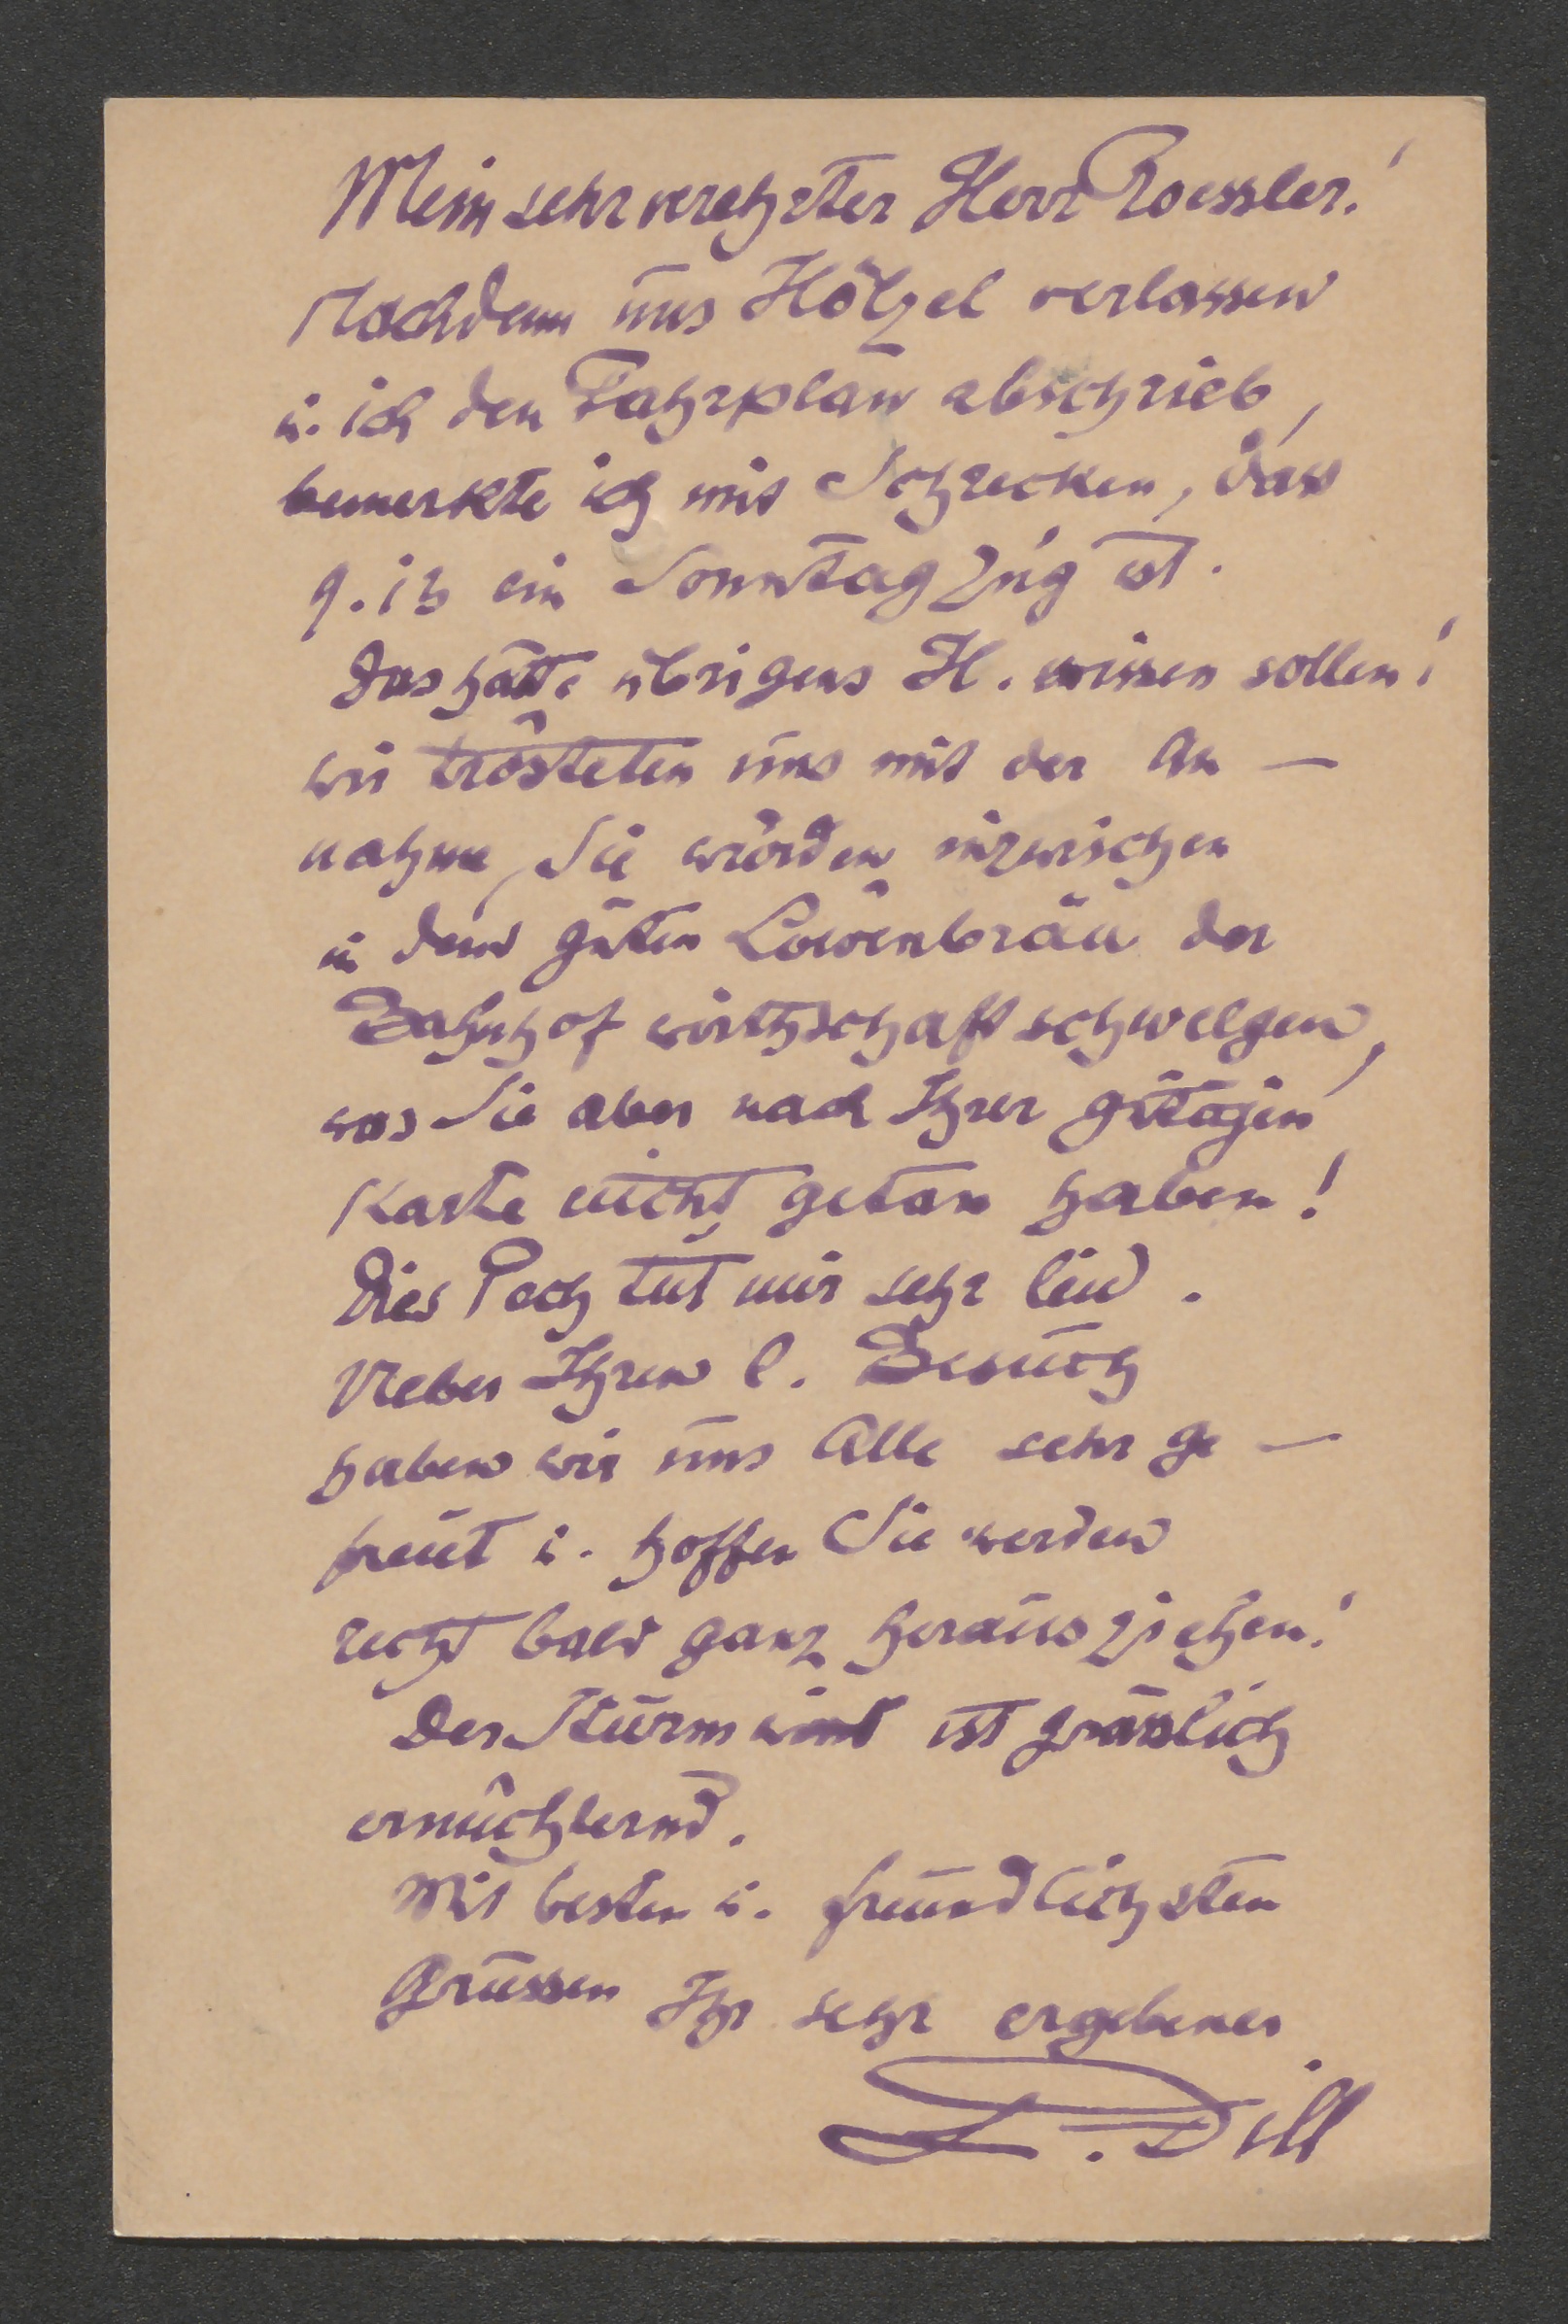 Mein sehr verehrter Herr Roessler!
Nachdem uns Hölzel verlassen
u. ich den Fahrplan abschrieb,
bemerkte ich mit Schrecken, dass
9.13 ein Sonntagzug ist.
Das hätte übrigens H. wissen sollen!
wir trösteten uns mit der An-
nahme, Sie würden inzwischen
in dem guten Löwenbräu der
Bahnhofwirthschaft schwelgen,
was Sie aber nach Ihrer
Karte nicht getan haben!
Dies Pech tut mir sehr leid.
Ueber Ihren l. Besuch
haben wir uns Alle sehr ge-
freut u. hoffen Sie werden
recht bald ganz herausziehen!
Der Sturmwind ist grässlich
ernüchternd.
Mit besten u. freundlichsten
Grüssen Ihr sehr ergebener
L. Dill